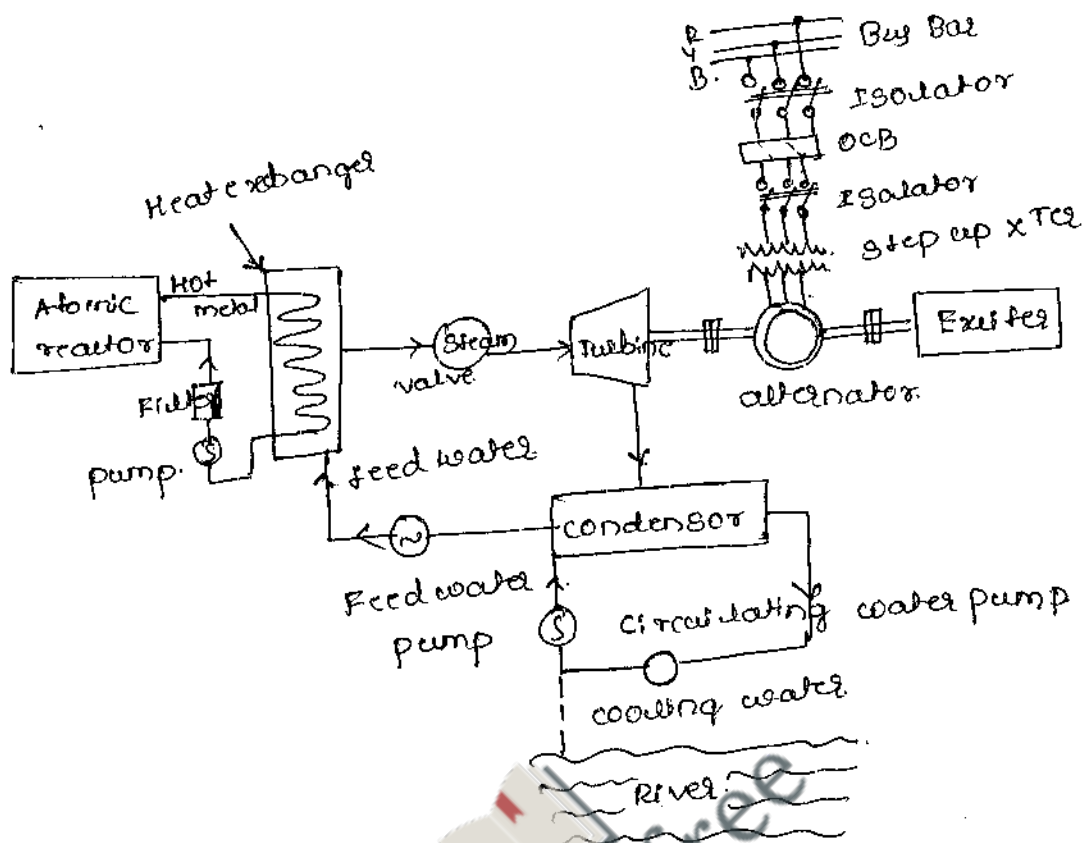 R
Y
B.
Bus Bar
Isolator
OCB
Isolator
Step up x TCR
Heat exchanger
Atomic
reactor
Hot
metal
Steam
valve
Turbine
Exciter
alternator.
Filter
pump.
feed water
condensor
Feed water
pump
S
S
~
circulating water pump
cooling water
River
free